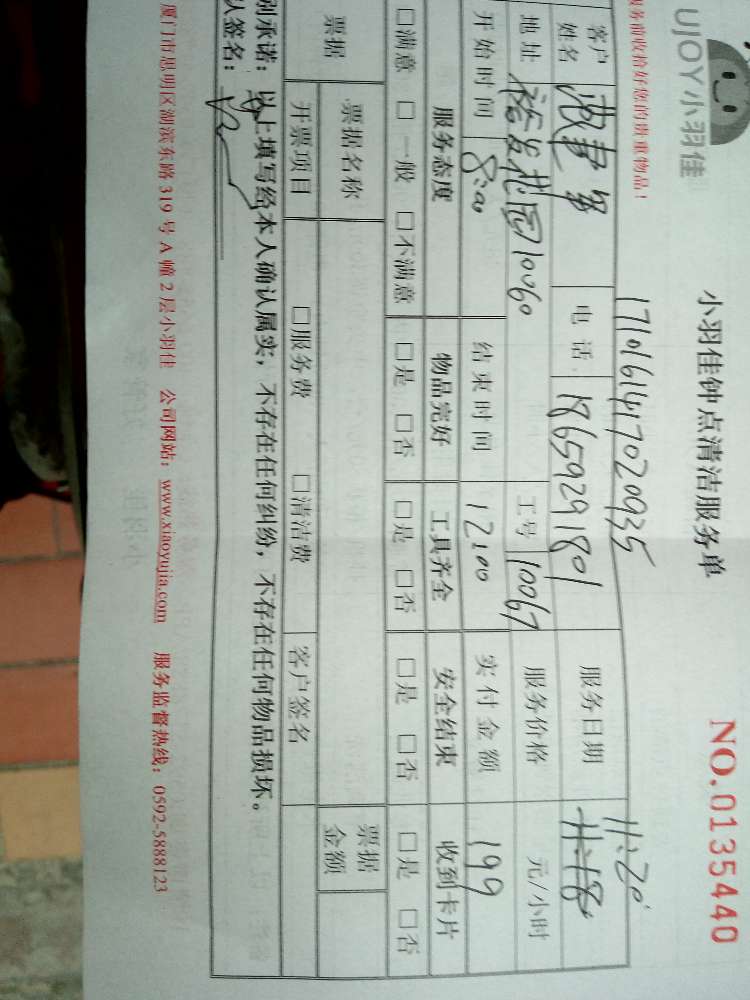 UJOY小羽佳
小羽佳钟点清洁服务单
NO.0135440
务前收拾好您的贵重物品！
1710161417020935
11.20
客户姓名 电话 18659291801 服务日期 11.18
地址 裕发花园710860 工号 10067 服务价格 元/小时
开始时间 8:00 结束时间 12:00 实付金额 199
服务态度 物品完好 工具齐全 安全结束 收到卡片
□满意 □一般 □不满意 □是 □否 □是 □否 □是 □否 □是 □否
票据 票据名称 票据金额
开票项目 □服务费 □清洁费 客户签名
别承诺：以上填写经本人确认属实，不存在任何纠纷，不存在任何物品损坏。
人签名：
厦门市思明区湖滨东路 319 号 A 幢 2 层小羽佳 公司网站：www.xiaoyujia.com 服务监督热线：0592-5888123